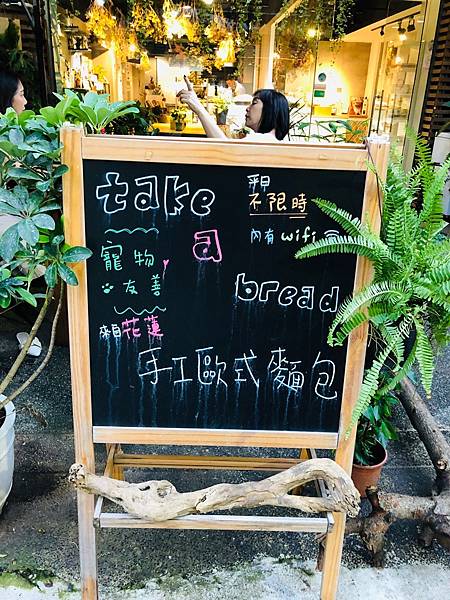 take
a
bread
平日
不限時
內有wifi
寵物
友善
來自花蓮
手工歐式麵包